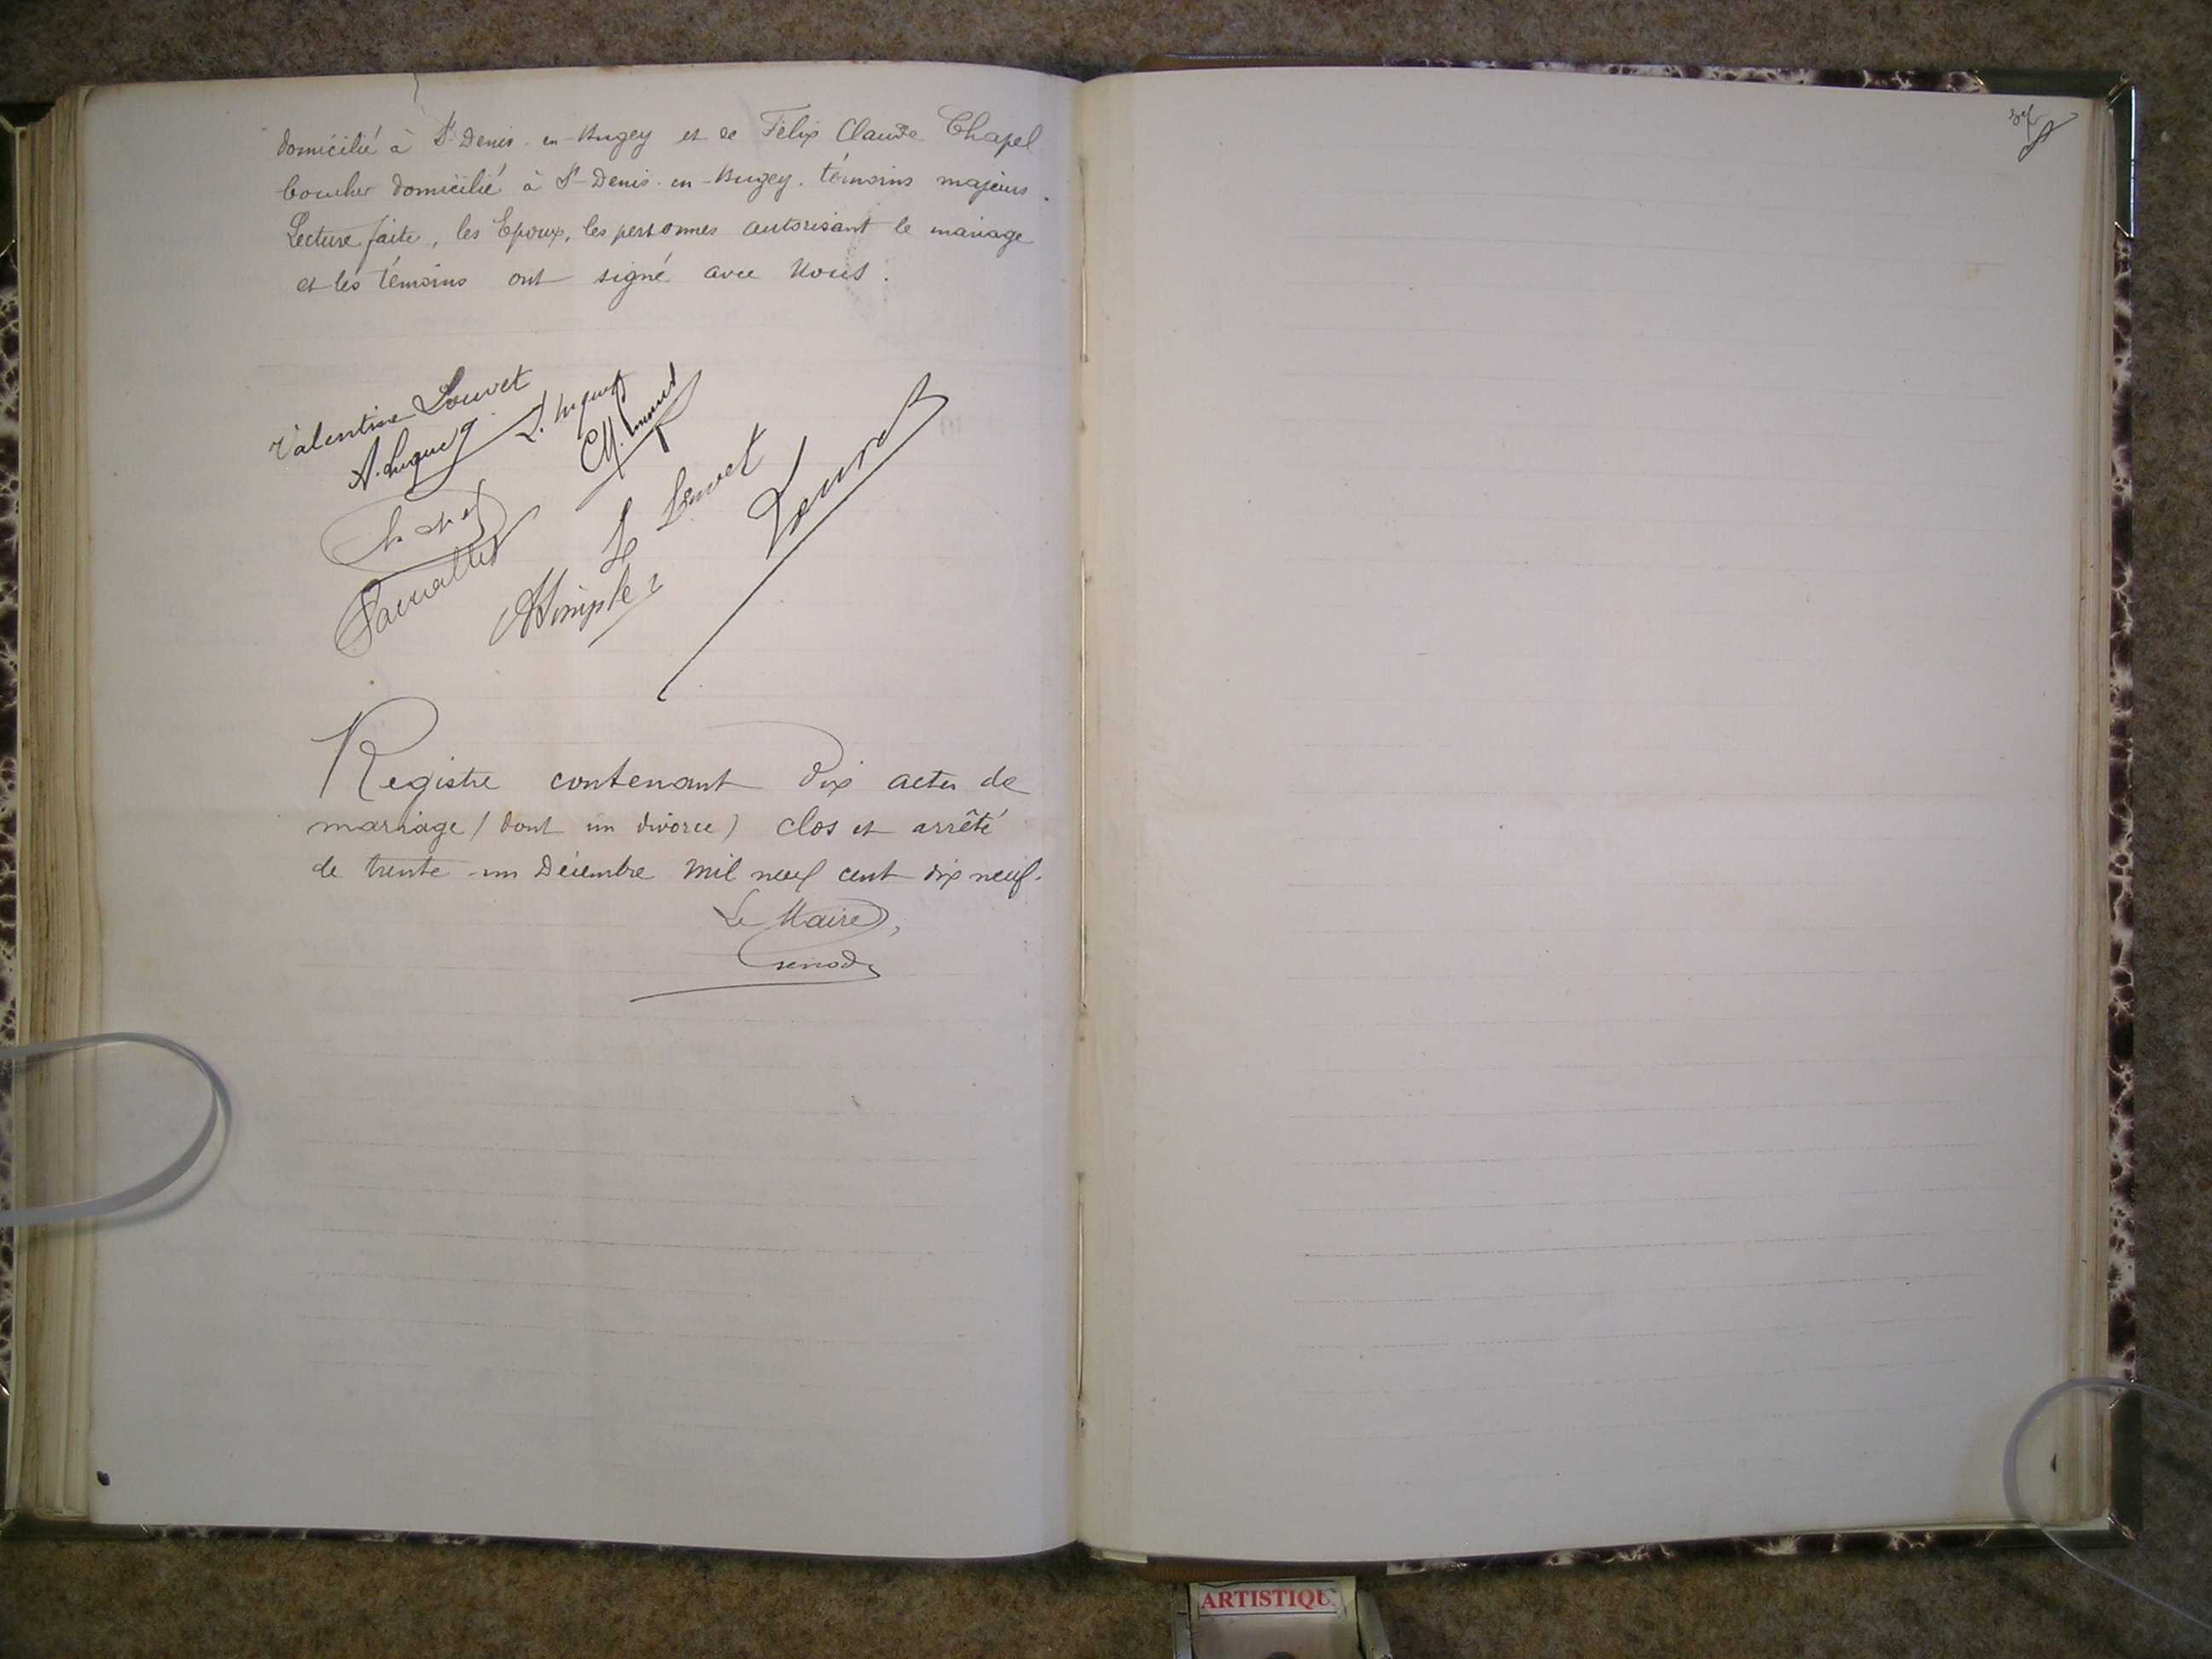 domicilié à St-Denis-en-Bugey et de Félix Claude Chapel
boucher domicilié à St-Denis-en-Bugey. témoins majeurs.
Lecture faite, les Epoux, les personnes autorisant le mariage
et les témoins ont signé avec Nous.
Valentine Louvet
L Louvet
Louvet
Registre contenant dix actes de
mariage (dont un divorce) clos et arrêté
le trente-un Décembre mil neuf cent dix neuf.
Le Maire,
ARTISTIQU